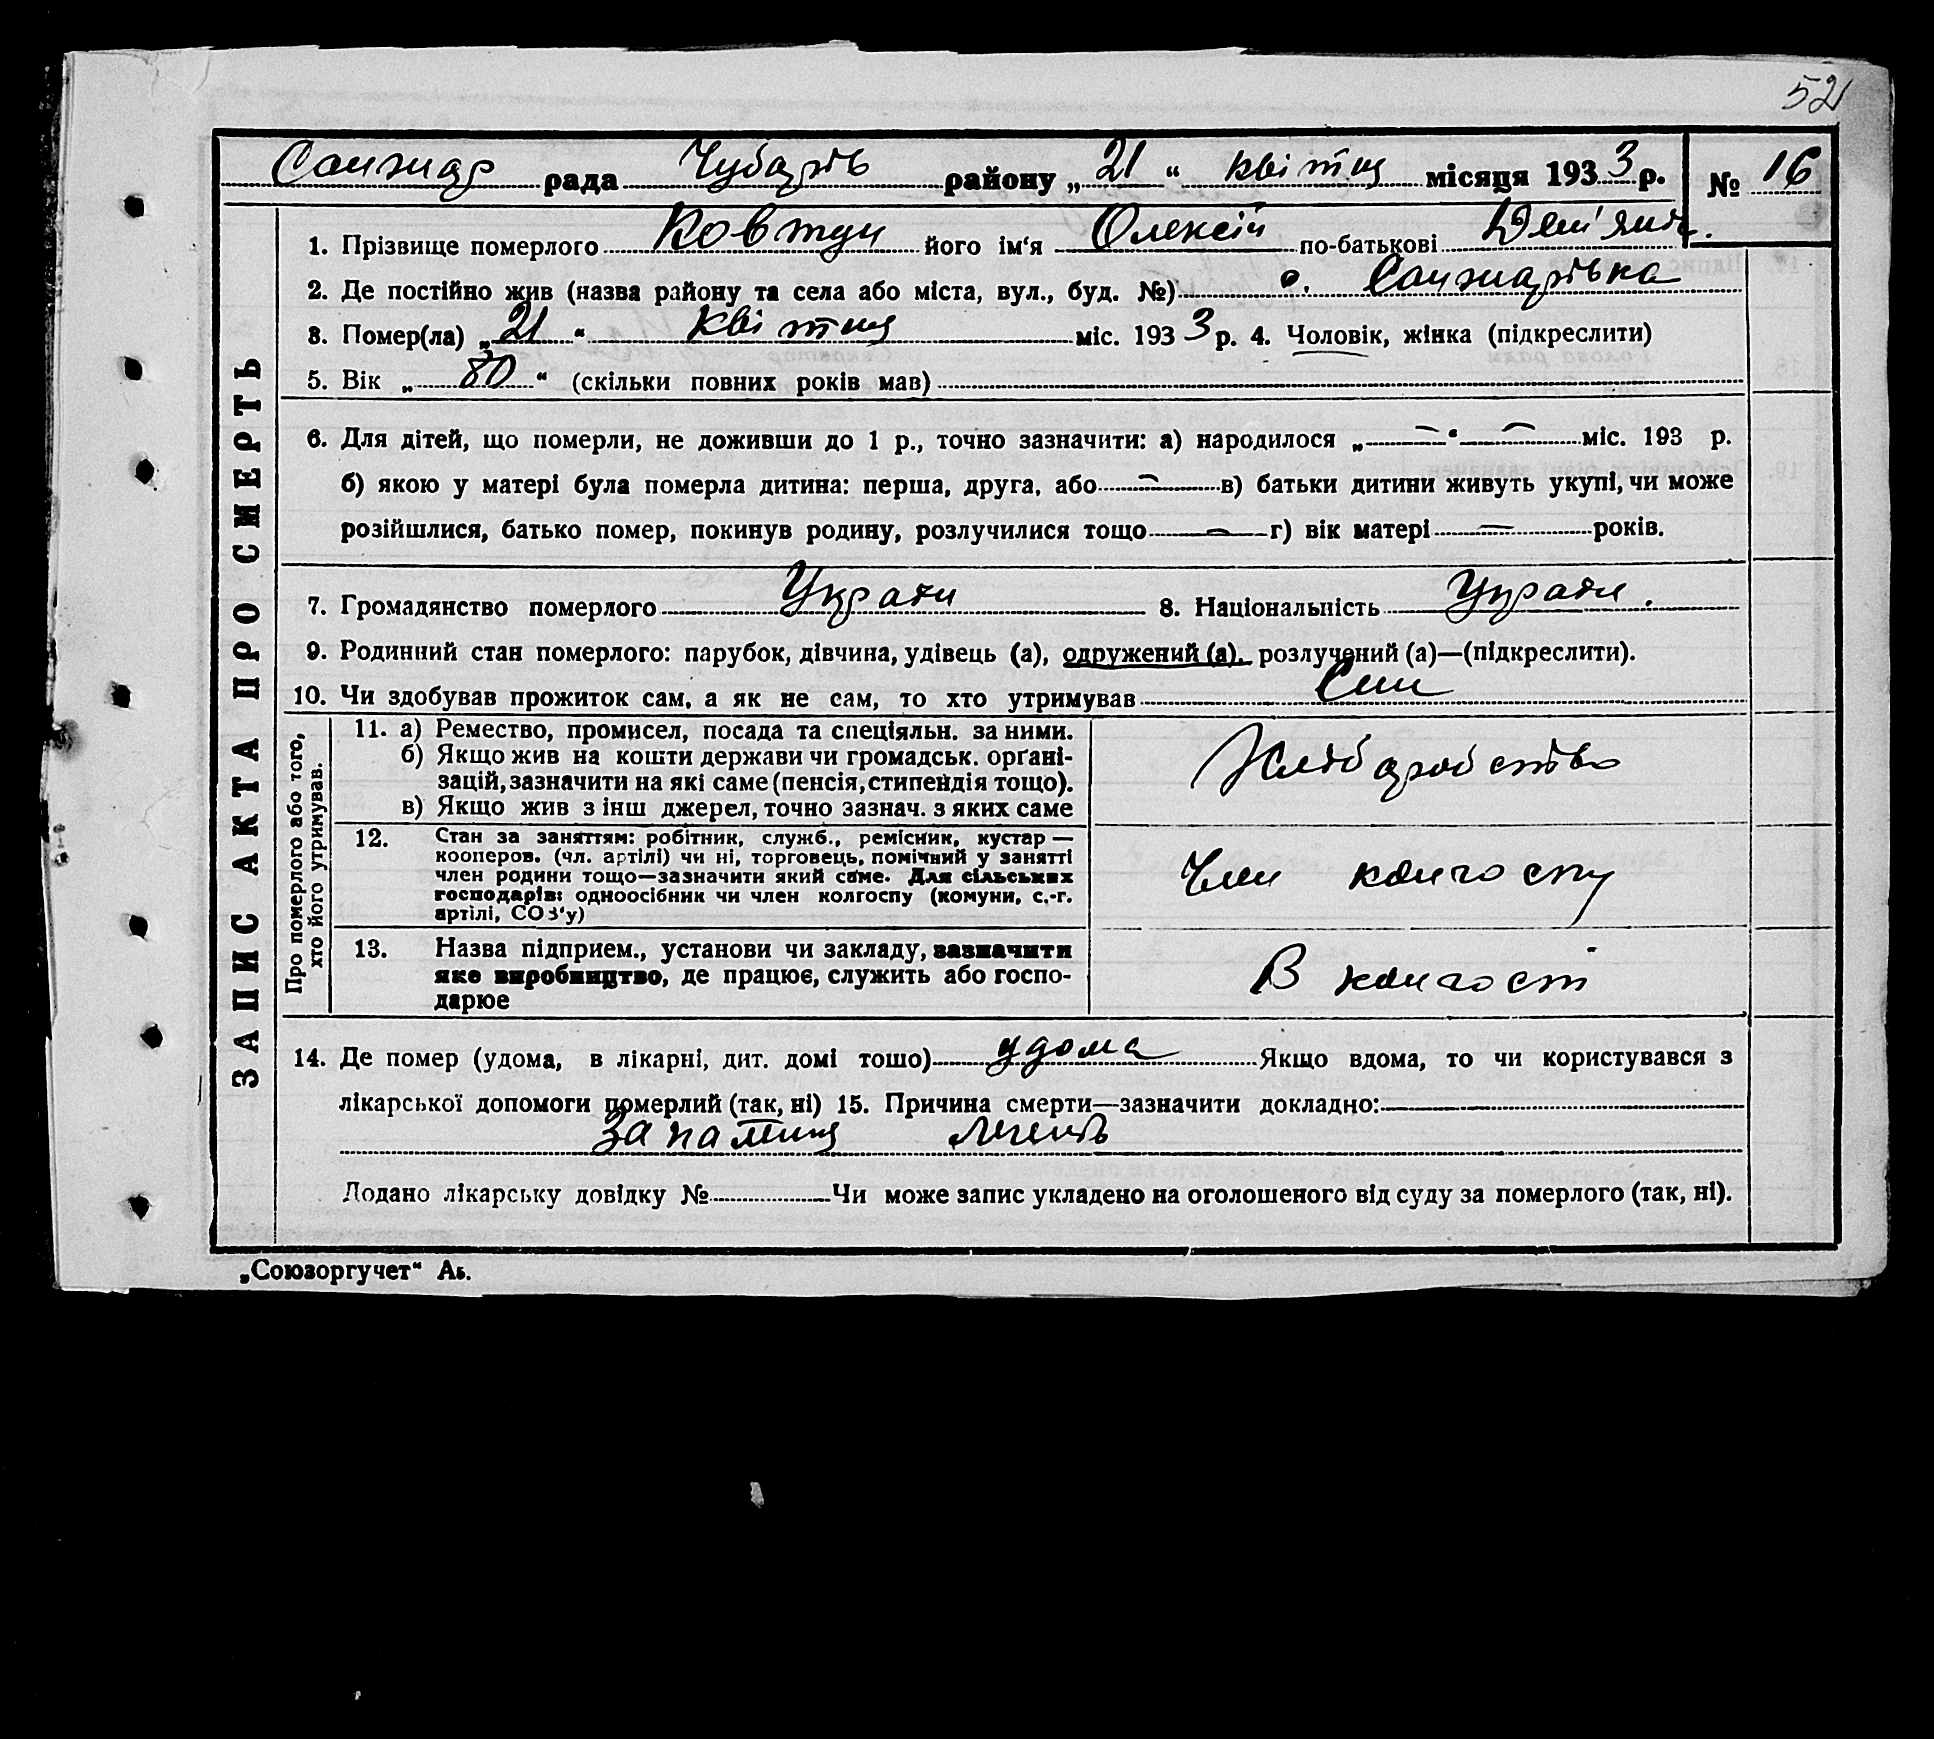 52
Санжар рада Чубарів району „ 21 “ квітня місяця 193 3 р. № 16
ЗАПИС АКТА ПРО СМЕРТЬ
1. Прізвище померлого Ковтун його ім‘я Олексій по-батькові Дем'янов.
2. Де постійно жив (назва району та села або міста, вул., буд. №) с. Санжарівка
3. Помер(ла) „ 21 “ квітня міс. 193 3 р. 4. Чоловік, жінка (підкреслити)
5. Вік „ 80 “ (скільки повних років мав)
6. Для дітей, що померли, не доживши до 1 р., точно зазначити: а) народилося „ — “ — міс. 193 р.
б) якою у матері була померла дитина: перша, друга, або — в) батьки дитини живуть укупі, чи може
розійшлися, батько помер, покинув родину, розлучилися тощо — г) вік матері — років.
7. Громадянство померлого Украти 8. Національність Украти.
9. Родинний стан померлого: парубок, дівчина, удівець (а), одружений (а), розлучений (а)—(підкреслити).
10. Чи здобував прожиток сам, а як не сам, то хто утримував Син
Про померлого або того,
хто його утримував.
11. а) Ремество, промисел, посада та спеціяльн. за ними.
б) Якщо жив на кошти держави чи громадськ. орґані-
зацій, зазначити на які саме (пенсія, стипендія тощо).
в) Якщо жив з інш джерел, точно зазнач. з яких саме
Хліборобство
12. Стан за заняттям: робітник, служб., ремісник, кустар —
кооперов. (чл. артілі) чи ні, торговець, помічний у занятті
член родини тощо—зазначити який саме. Для сільських
господарів: одноосібник чи член колгоспу (комуни, с.-г.
артілі, СОЗ‘у)
Член колгоспу
13. Назва підприєм., установи чи закладу, зазначити
яке виробництво, де працює, служить або госпо-
дарює
В колгосп
14. Де помер (удома, в лікарні, дит. домі тошо) удома Якщо вдома, то чи користувався з
лікарської допомоги померлий (так, ні) 15. Причина смерти—зазначити докладно:
Запаления легенів
Додано лікарську довідку № Чи може запис укладено на оголошеного від суду за померлого (так, ні).
„Союзоргучет“ Аь.